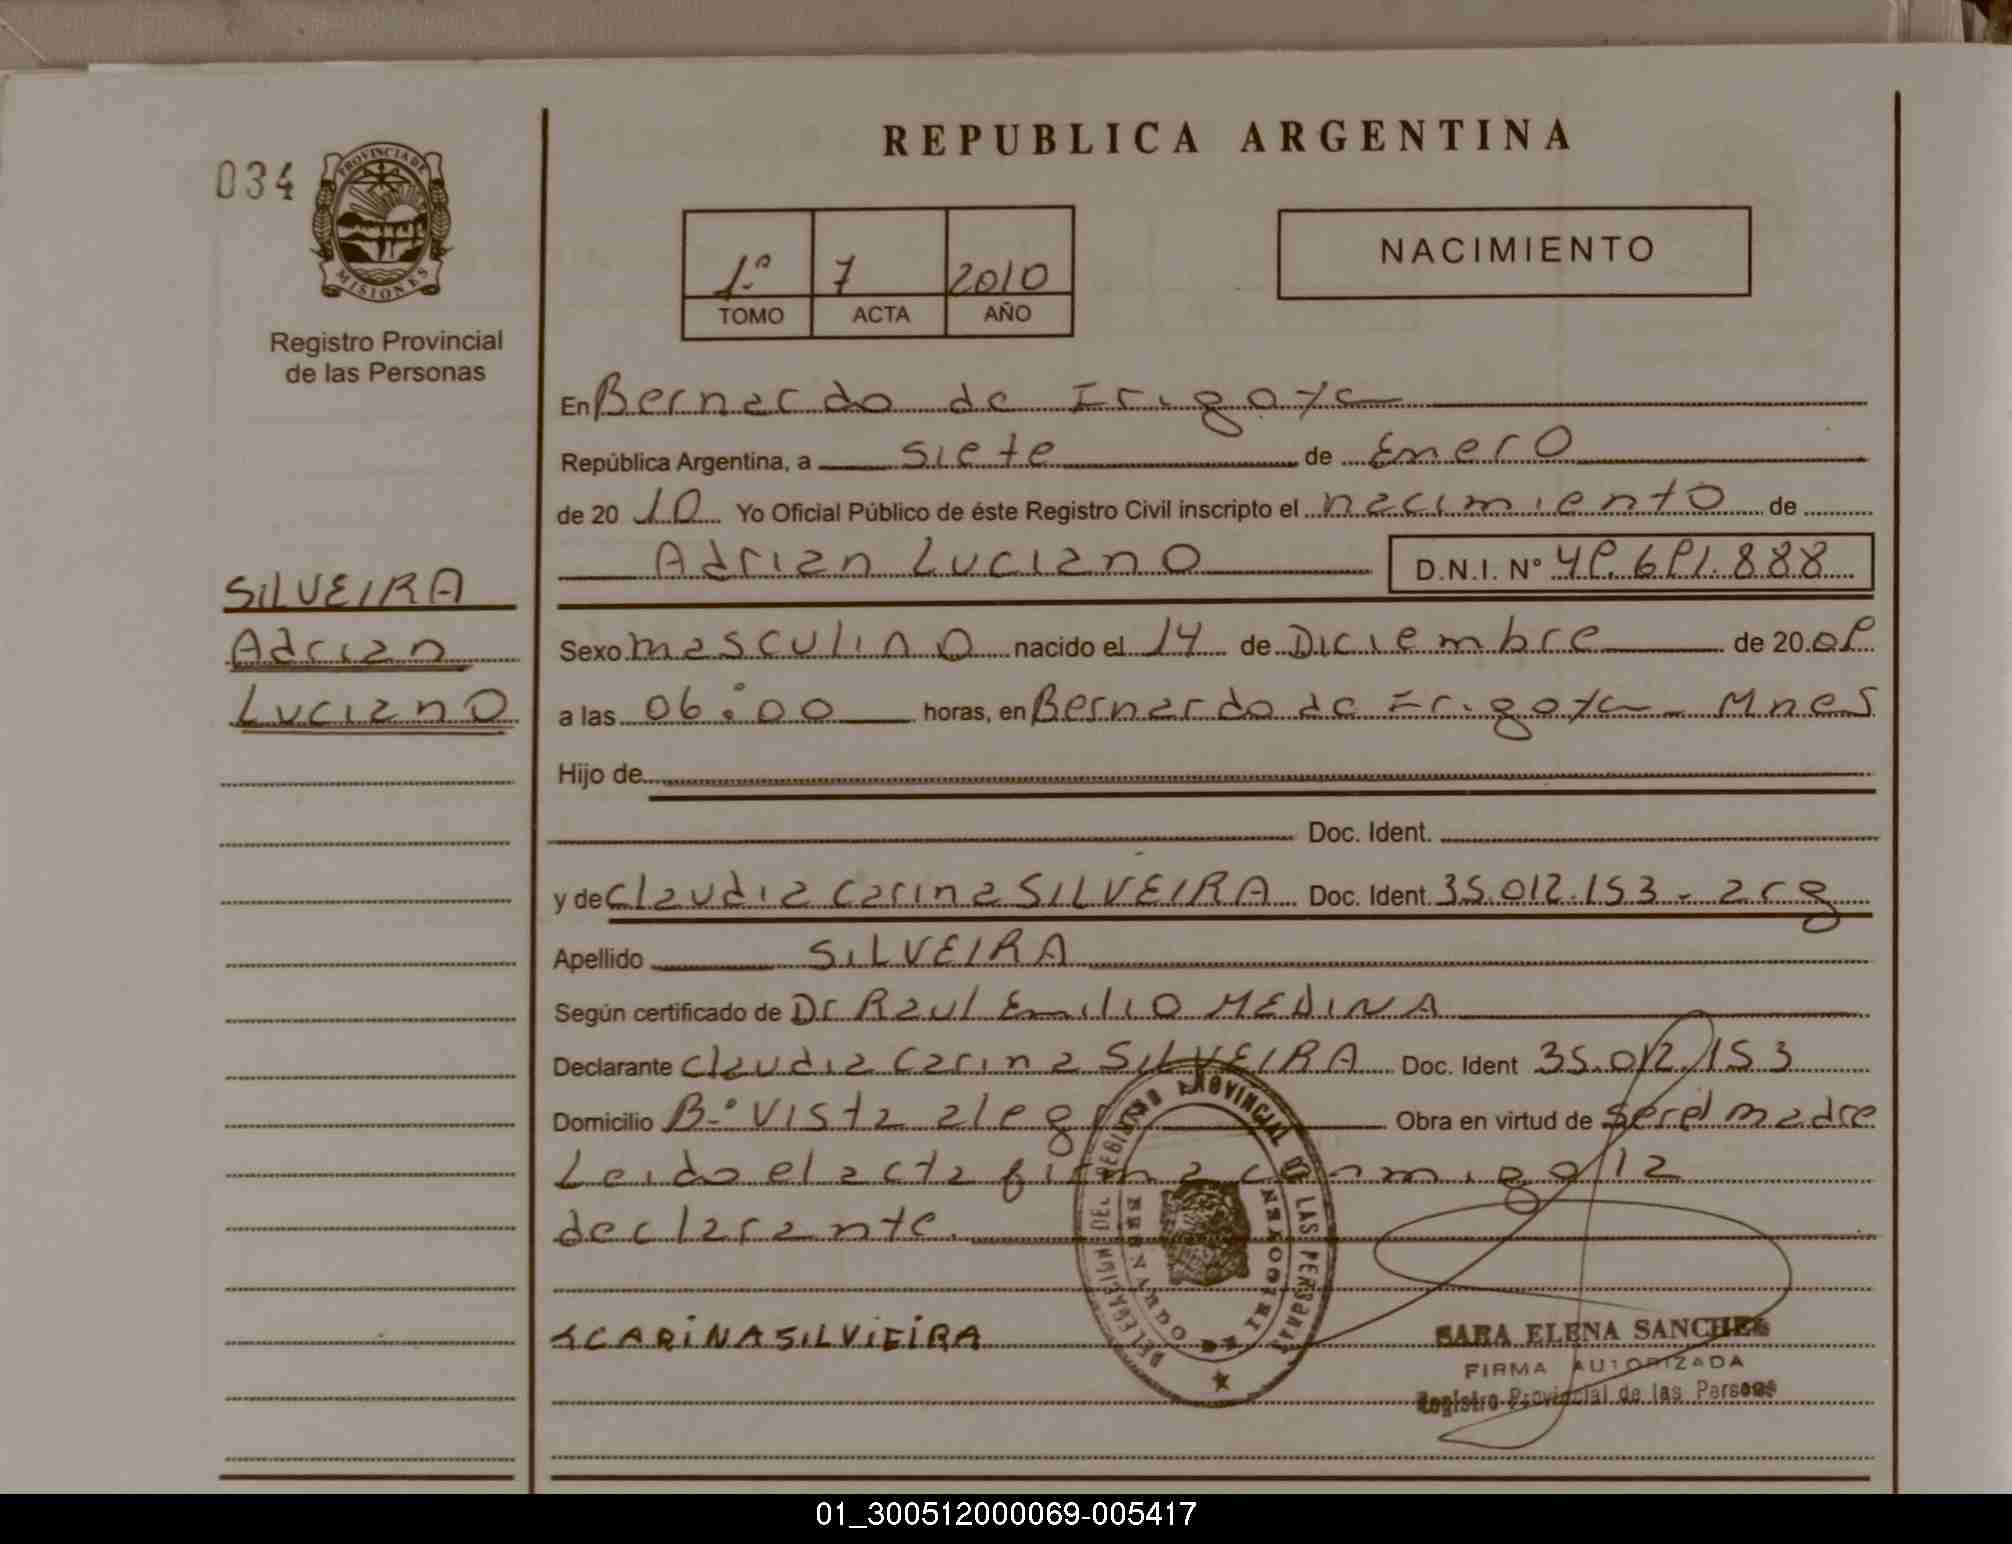 REPUBLICA ARGENTINA
034
PROVINCIA DE
MISIONES
Registro Provincial
de las Personas
1º 7 2010
TOMO ACTA AÑO
NACIMIENTO
En Bernardo de Irigoye
República Argentina, a siete de Enero
de 20 10 Yo Oficial Público de éste Registro Civil inscripto el nacimiento de
Adrian Luciano D.N.I. Nº 49.691.888
SILVEIRA
Adrian
Luciano
Sexo masculino nacido el 14 de Diciembre de 20 09
a las 06:00 horas, en Bernardo de Irigoye - Mnes
Hijo de
Doc. Ident.
y de Claudia Carina SILVEIRA Doc. Ident. 35.012.153 - arg
Apellido SILVEIRA
Según certificado de Dr Raul Emilio MEDINA
Declarante Claudia Carina SILVEIRA Doc. Ident 35.012.153
Domicilio Bº Vista alegre Obra en virtud de ser el madre
Leido el acta firma conmigo la
declarante.
CARINA SILVIEIRA
DELEGACION DEL REGISTRO PROVINCIAL DE LAS PERSONAS
BERNARDO DE IRIGOYEN
SARA ELENA SANCHEZ
FIRMA AUTORIZADA
Registro Provincial de las Personas
01_300512000069-005417